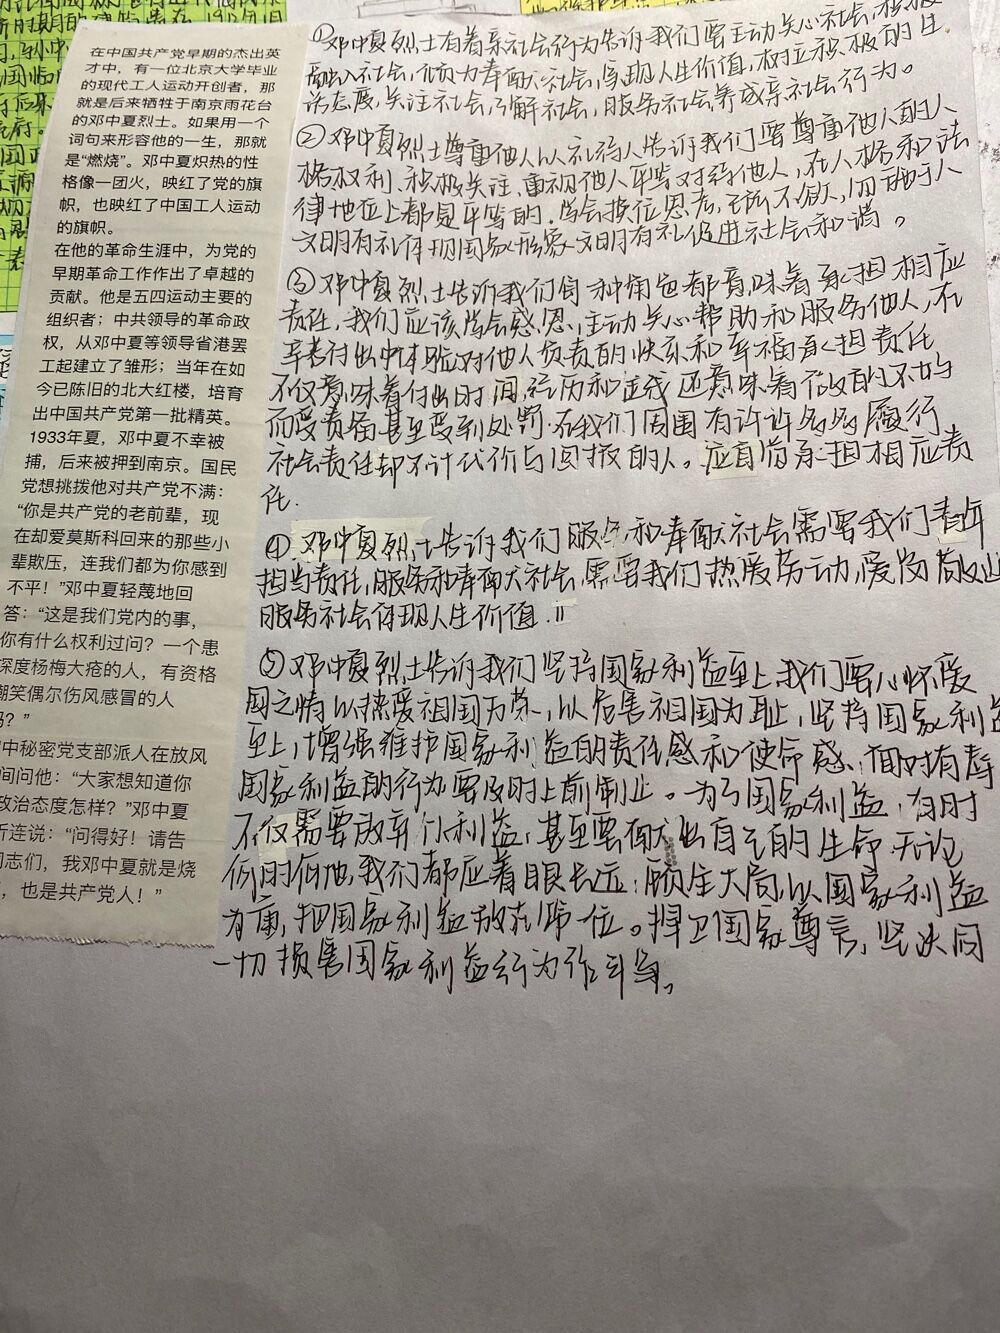 在中国共产党早期的杰出英
才中，有一位北京大学毕业
的现代工人运动开创者，那
就是后来牺牲于南京雨花台
的邓中夏烈士。如果用一个
词句来形容他的一生，那就
是“燃烧”。邓中夏炽热的性
格像一团火，映红了党的旗
帜，也映红了中国工人运动
的旗帜。
在他的革命生涯中，为党的
早期革命工作作出了卓越的
贡献。他是五四运动主要的
组织者；中共领导的革命政
权，从邓中夏等领导省港罢
工起建立了雏形；当年在如
今已陈旧的北大红楼，培育
出中国共产党第一批精英。
1933年夏，邓中夏不幸被
捕，后来被押到南京。国民
党想挑拨他对共产党不满：
“你是共产党的老前辈，现
在却爱莫斯科回来的那些小
辈欺压，连我们都为你感到
不平！”邓中夏轻蔑地回
答：“这是我们党内的事，
你有什么权利过问？一个患
深度杨梅大疮的人，有资格
嘲笑偶尔伤风感冒的人
吗？”
中秘密党支部派人在放风
间问他：“大家想知道你
政治态度怎样？”邓中夏
连说：“问得好！请告
同志们，我邓中夏就是烧
，也是共产党人！”
①邓中夏烈士有着亲社会行为告诉我们要主动关心社会，积极
融入社会，倾力奉献社会，实现人生价值，树立积极的生
活态度，关注社会，了解社会，服务社会养成亲社会行为。
②邓中夏烈士尊重他人以礼待人告诉我们要尊重他人的人
格权利、积极关注、重视他人平等对待他人，在人格和法
律地位上都是平等的，学会换位思考，己所不欲，勿施于人
文明有礼体现国家形象文明有礼促进社会和谐。
③邓中夏烈士告诉我们每种角色都意味着承担相应
责任，我们应该学会感恩，主动关心帮助和服务他人，在
辛苦付出中体验对他人负责的快乐和幸福承担责任
不仅意味着付出时间，经历和金钱还意味着做的不好
而受责备甚至受到处罚.在我们周围有许许多多履行
社会责任却不计代价与回报的人。应自觉承担相应责
任.
④邓中夏烈士告诉我们服务和奉献社会需要我们青年
担当责任，服务和奉献社会需要我们热爱劳动，爱岗敬业
服务社会体现人生价值.
⑤邓中夏烈士告诉我们坚持国家利益至上，我们要心怀爱
国之情以热爱祖国为荣，以危害祖国为耻，坚持国家利益
至上，增强维护国家利益的责任感和使命感、面对有辱
国家利益的行为要及时上前制止。为了国家利益，有时
不仅需要放弃个人利益，甚至要献出自己的生命.无论
何时何地，我们都应着眼长远，顾全大局，以国家利益
为重，把国家利益放在第一位。捍卫国家尊言，坚决同
一切损害国家利益行为作斗争。